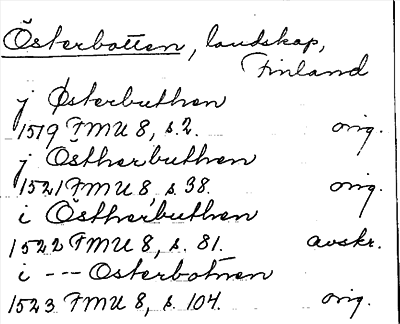 Österbotten, landskap,
Finland
j Østerbuthen
1519 FMU 8, s.2. orig.
j Östherbuthen
1521 FMU 8, s.38. orig.
i Östherbuthen
1522 FMU 8, s. 81. avskr.
i --- Osterbotnen
1523 FMU 8, s. 104. orig.